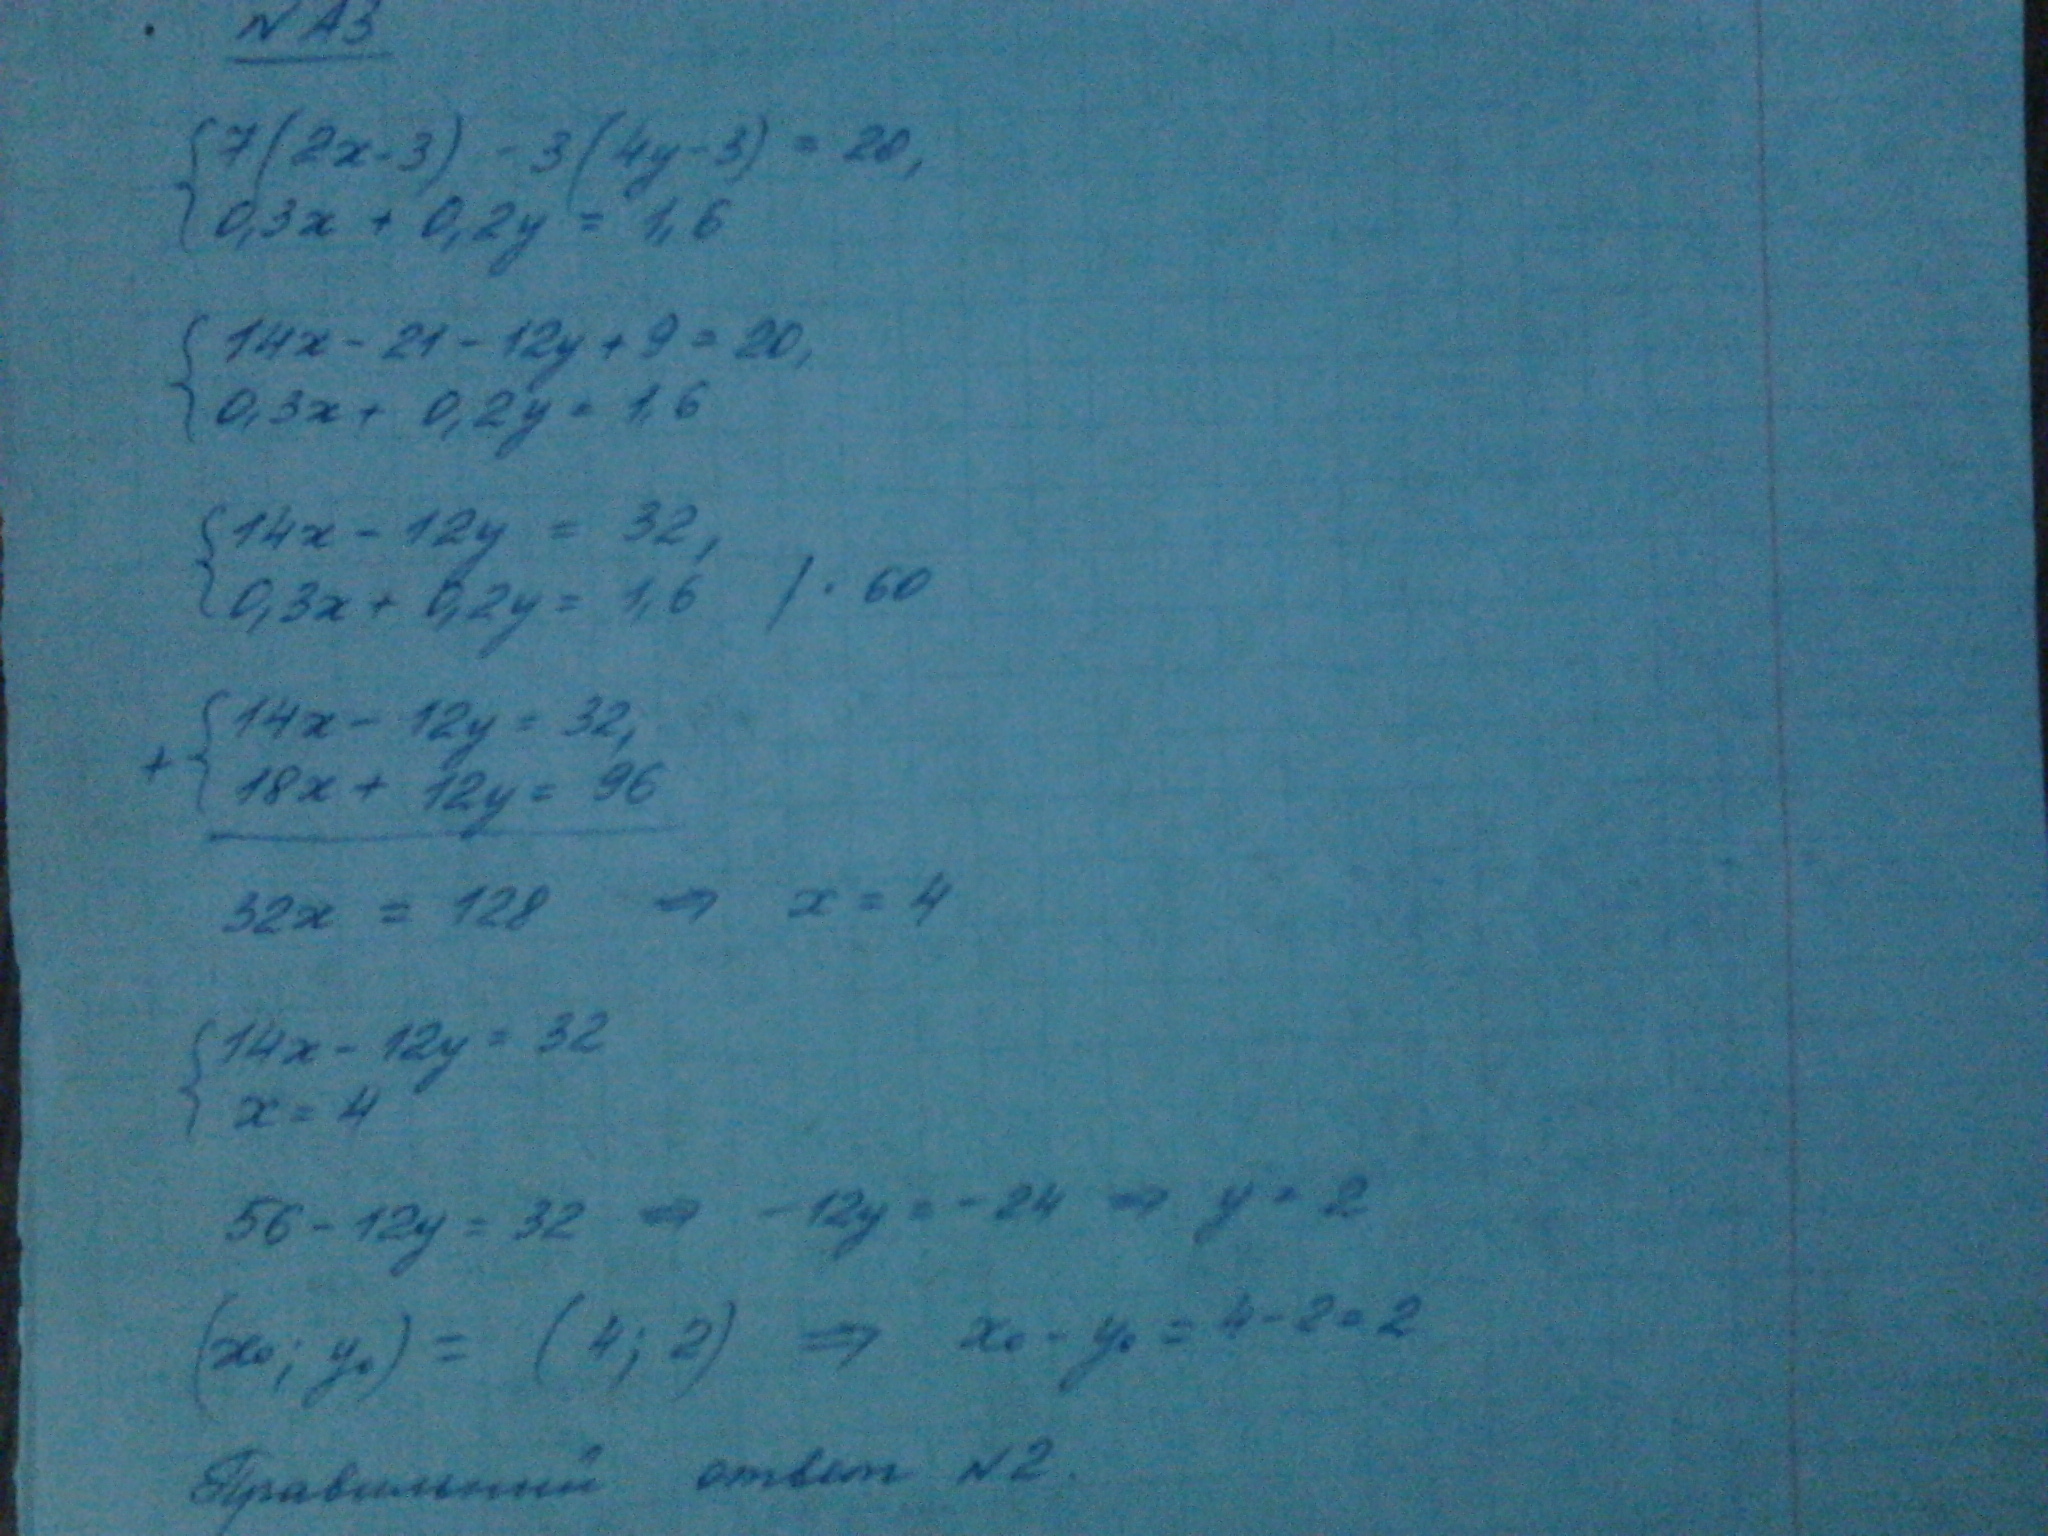 № А3
7(2x-3) - 3(4y-3) = 20,
0,3x + 0,2y = 1,6
14x - 21 - 12y + 9 = 20,
0,3x + 0,2y = 1,6
14x - 12y = 32,
0,3x + 0,2y = 1,6 | · 60
14x - 12y = 32,
+
18x + 12y = 96
32x = 128 ⇒ x = 4
14x - 12y = 32
x = 4
56 - 12y = 32 ⇒ -12y = -24 ⇒ y = 2
(x₀; y₀) = (4; 2) ⇒ x₀ - y₀ = 4 - 2 = 2
Правильный ответ №2.